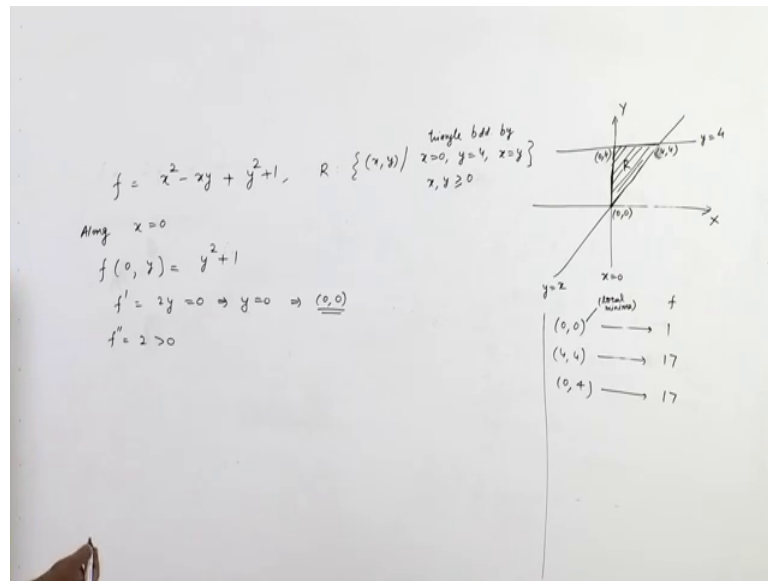 f = x² - xy + y² + 1, R : { (x, y) / triangle bdd. by x=0, y=4, x=y } x, y ≥ 0
Along x=0
f(0, y) = y² + 1
f' = 2y = 0 ⇒ y=0 ⇒ (0,0)
f'' = 2 > 0
Y
y=4
(4,4)
R
(0,0)
X
x=0
y=x
(local minima) f
(0,0) → 1
(4,4) → 17
(0,4) → 17